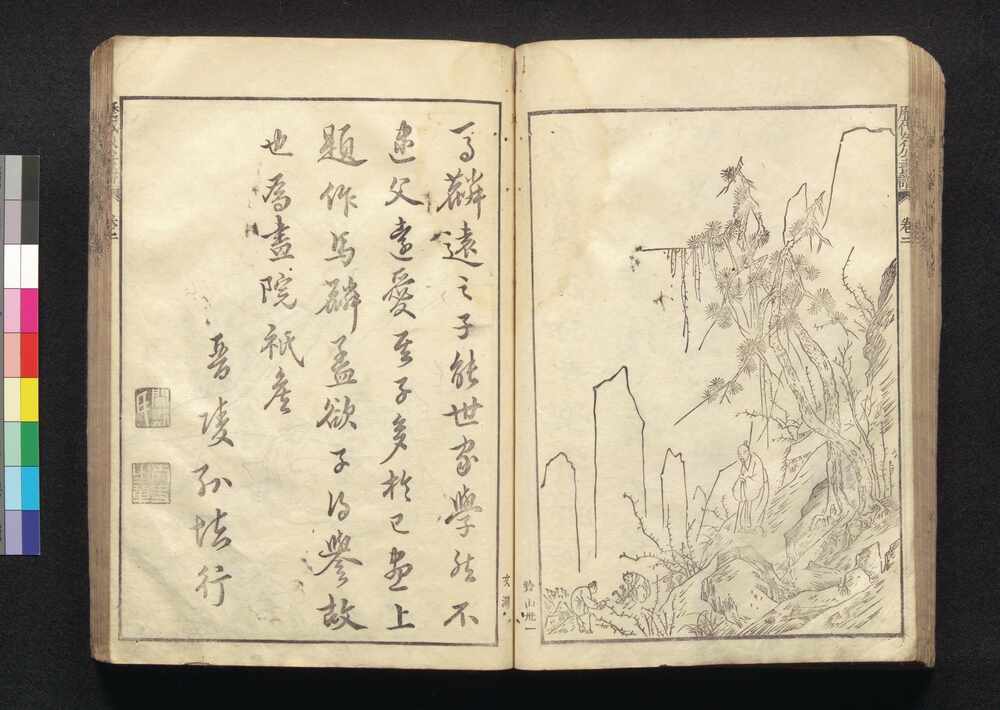 歷代名公畫譜 卷二
馬麟遠之子能世家學然不
逮父遠愛其子多於己畫上
題作馬麟盖欲子得譽故
也為畫院祗候
晉陵孫慎行